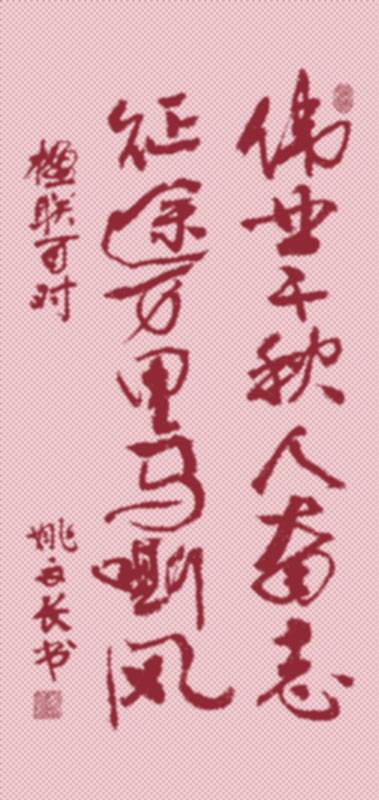 伟业千秋人奋志
征途万里马嘶风
楹联可对
姚文长书